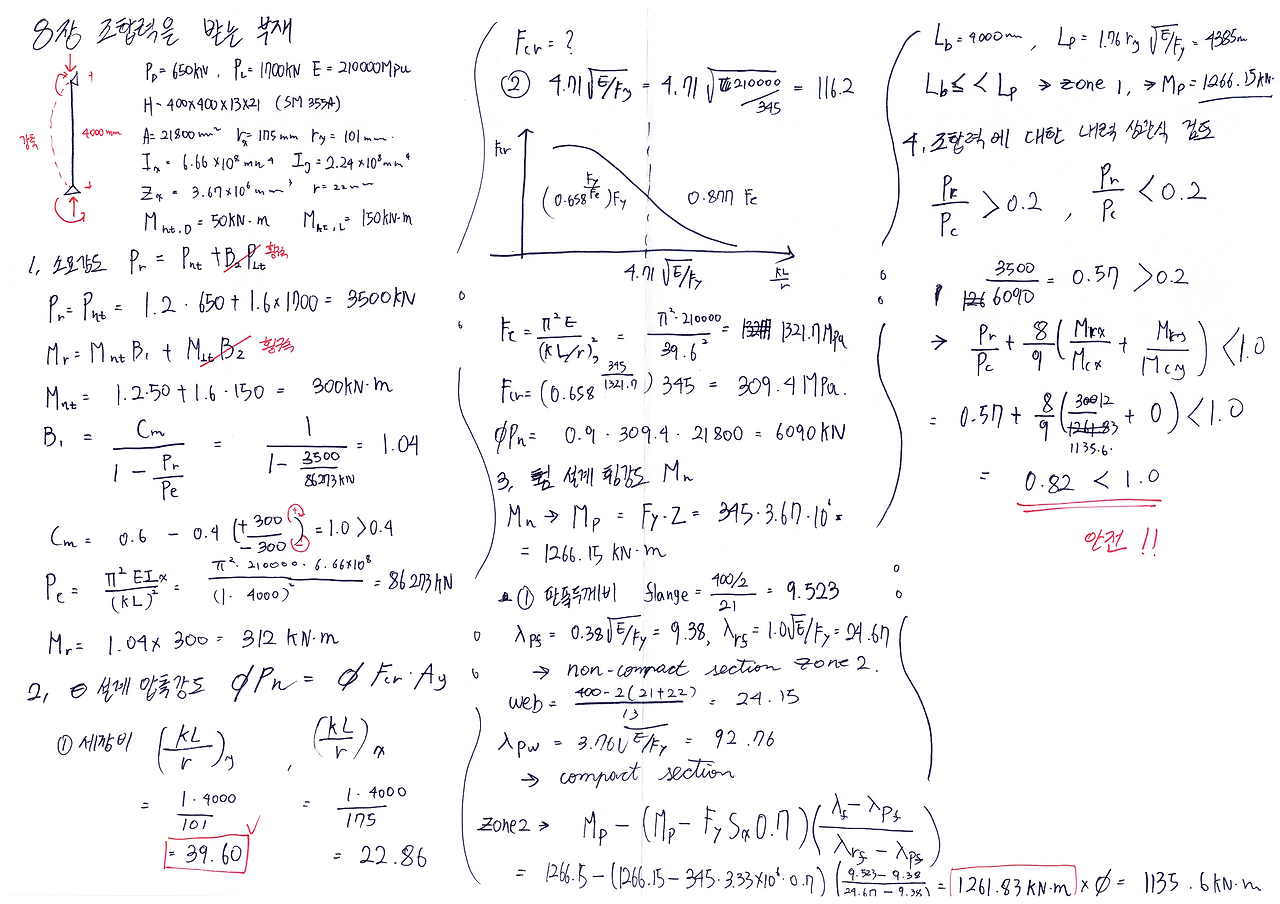 8장 조합력을 받는 부재
P_D = 650kN, P_L = 1700kN E = 210000Mpa
H-400×400×13×21 (SM 355A)
A = 21800mm² r_x = 175mm r_y = 101mm.
I_x = 6.66×10⁸mm⁴ I_y = 2.24×10⁸mm⁴
Z_x = 3.67×10⁶mm³ r = 22mm
M_nt,D = 50kN·m M_nt,L = 150kN·m
강축
4000mm
1, 소요강도 P_r = P_nt + B_2 P_lt 횡구속
P_r = P_nt = 1.2·650 + 1.6×1700 = 3500kN
M_r = M_nt B_1 + M_lt B_2 횡구속
M_nt = 1.2·50 + 1.6·150 = 300kN·m
B_1 = C_m / (1 - P_r/P_e) = 1 / (1 - 3500/86273kN) = 1.04
C_m = 0.6 - 0.4 (+300/-300) (+) (-) = 1.0 > 0.4
P_e = π²EI_x/(kL)² = π²·210000·6.66×10⁸/(1·4000)² = 86273kN
M_r = 1.04×300 = 312 kN·m
2, 설계 압축강도 ØP_n = Ø F_cr·A_g
① 세장비 (kL/r)_y , (kL/r)_x
= 1·4000/101 = 1·4000/175
= 39.60 = 22.86
F_cr = ?
② 4.71√E/F_y = 4.71 √210000/345 = 116.2
F_cr
(0.658^(F_y/F_e))F_y 0.877 F_e
4.71√E/F_y kL/r
F_e = π²E/(kL/r)_y² = π²·210000/39.6² = 1321.7Mpa
F_cr = (0.658^(345/1321.7)) 345 = 309.4MPa.
ØP_n = 0.9·309.4·21800 = 6090kN
3, 설계 휨강도 M_n
M_n → M_p = F_y·Z = 345·3.67·10⁶ =
= 1266.15 kN·m
① 판폭두께비 flange = (400/2)/21 = 9.523
λ_pf = 0.38√E/F_y = 9.38, λ_rf = 1.0√E/F_y = 24.67
→ non-compact section zone 2.
web = (400-2(21+22))/13 = 24.15
λ_pw = 3.76√E/F_y = 92.76
→ compact section
zone2 → M_p - (M_p - F_y S_x 0.7)((λ_f - λ_pf)/(λ_rf - λ_pf))
= 1266.5 - (1266.15 - 345·3.33×10⁶·0.7)((9.523-9.38)/(24.67-9.38)) = 1261.83 kN·m × Ø = 1135.6kN·m
L_b = 4000mm, L_p = 1.76 r_y √E/F_y = 4385m
L_b ≤ < L_p → zone 1, → M_p = 1266.15kN·
4, 조합력에 대한 내력 상관식 검토
P_r/P_c > 0.2 , P_r/P_c < 0.2
3500/6090 = 0.57 > 0.2
→ P_r/P_c + 8/9 (M_rx/M_cx + M_ry/M_cy) < 1.0
= 0.57 + 8/9 (312/1135.6. + 0) < 1.0
= 0.82 < 1.0
안전 !!